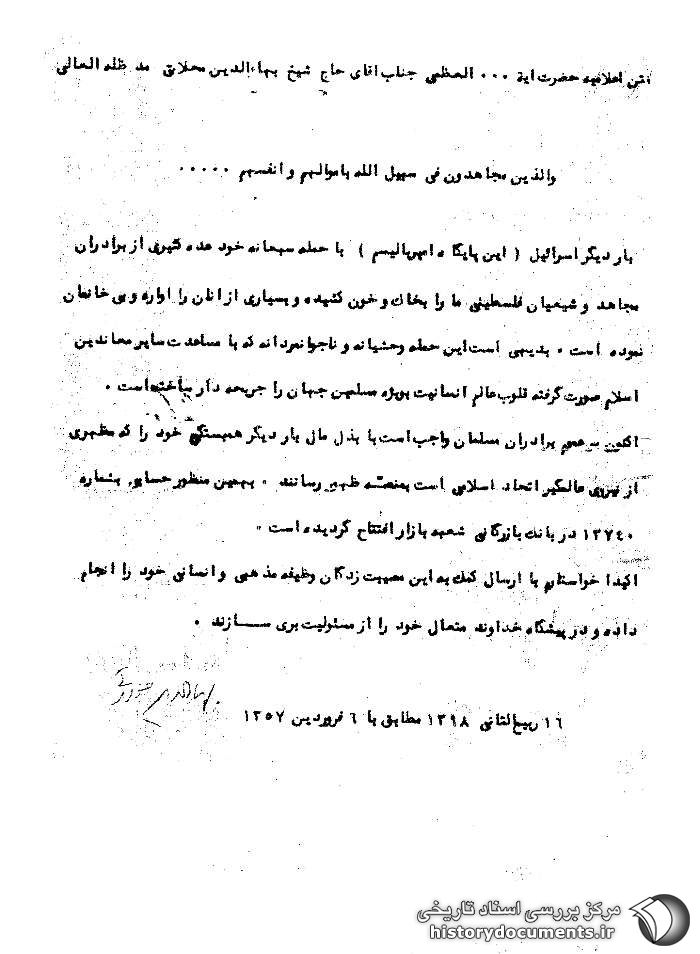 متن اعلامیه حضرت ایة ۰۰۰ العظمی جناب اقای حاج شیخ بهاءالدین محلاتی مد ظله العالی
والذین مجاهدون فی سبیل الله باموالهم و انفسهم ۰۰۰۰۰
بار دیگر اسرائیل ( این پایگاه امپریالیسم ) با حمله سبعانه خود عده کثیری از برادران
مجاهد و شیعیان فلسطینی ما را بخاک و خون کشیده و بسیاری از انان را اواره و بی خانمان
نموده است . بدیهی است این حمله وحشیانه و ناجوانمردانه که با مساعدت سایر معاندین
اسلام صورت گرفته قلوب عالم انسانیت بویژه مسلمین جهان را جریحه دار ساخته است .
اکنون بر عموم برادران مسلمان واجب است با بذل مال بار دیگر همبستگی خود را که مظهری
از نیروی عالمگیر اتحاد اسلامی است بمنصه ظهور رسانند . بهمین منظور حسابی بشماره
۱۳۷۴۰ در بانک بازرگانی شعبه بازار افتتاح گردیده است .
اکیدا خواستارم با ارسال کمک به این مصیبت زدگان وظیفه مذهبی و انسانی خود را انجام
داده و در پیشگاه خداوند متعال خود را از مسئولیت بری ســـازند .
۱۶ ربیع الثانی ۱۳۹۸ مطابق با ۶ فروردین ۱۳۵۷
مرکز بررسی اسناد تاریخی
historydocuments.ir